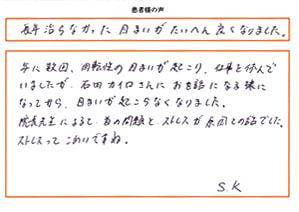 患者様の声
長年治らなかった目まいがたいへん良くなりました。
年に数回、回転性の目まいが起こり、仕事を休んで
いましたが、石田カイロさんにお世話になる様に
なってから、目まいが起こらなくなりました。
院長先生によると、首の問題と、ストレスが原因との話でした。
ストレスってこわいですね。
S.K